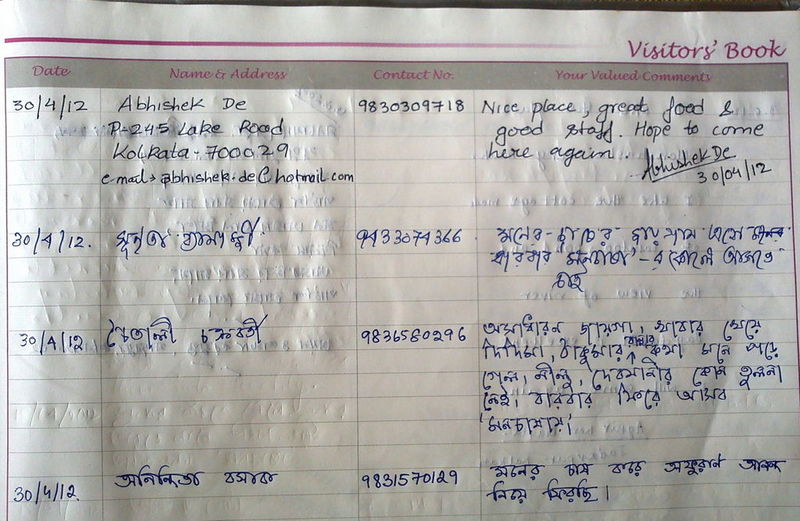 Visitors' Book
Date Name & Address Contact No. Your Valued Comments
30/4/12 Abhishek De 9830309718 Nice place, great food &
P-245 Lake Road good staff. Hope to come
Kolkata - 700029 here again. Abhishek De
e-mail → abhishek.de@hotmail.com 30/04/12
30/4/12. 9433074366 মনের
বারবার কোলে আসতে
চাই
30/4/12 চৈতালী চক্রবর্তী 9831580296 অসাধারন জায়গা, খাবার খেয়ে
দিদিমা, ঠাকুমার রান্নার কথা মনে পড়ে
গেল, কোন তুলনা
নেই, বারবার ফিরে আসব
30/4/12 অনিন্দিতা বসাক 9831570129 মনের অফুরান আনন্দ
নিয়ে ফিরছি।